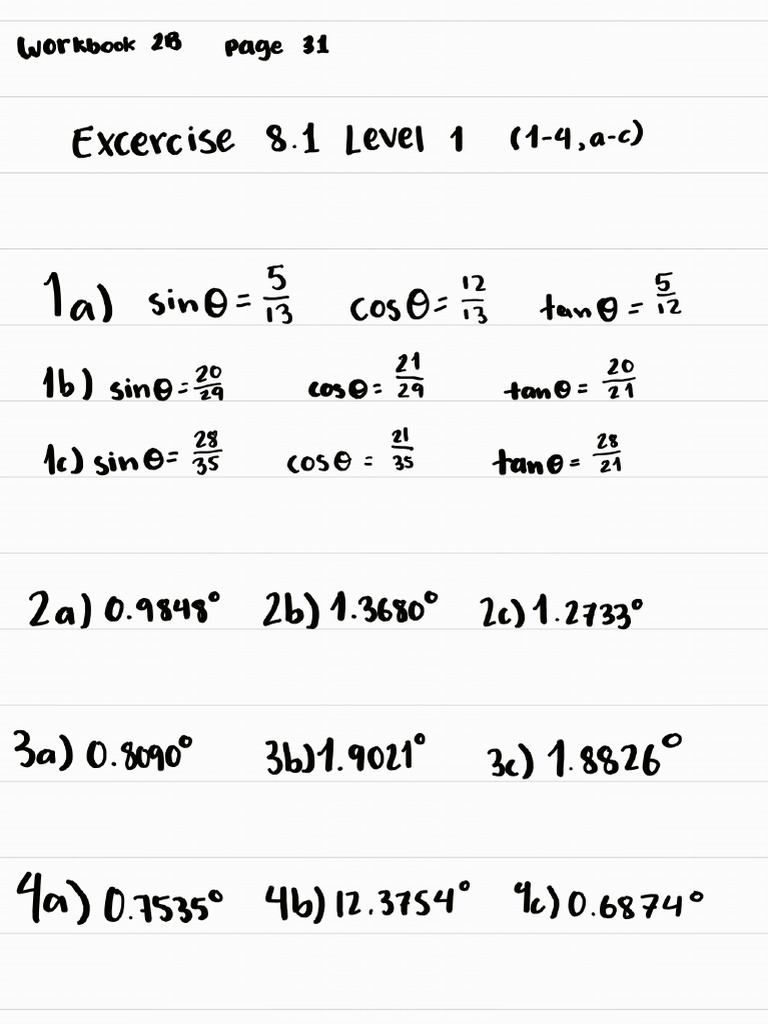 Workbook 2B page 31
Excercise 8.1 Level 1 (1-4, a-c)
1a) sinθ = 5/13 cosθ = 12/13 tanθ = 5/12
1b) sinθ = 20/29 cosθ = 21/29 tanθ = 20/21
1c) sinθ = 28/35 cosθ = 21/35 tanθ = 28/21
2a) 0.9848° 2b) 1.3680° 2c) 1.2733°
3a) 0.8090° 3b) 1.9021° 3c) 1.8826°
4a) 0.7535° 4b) 12.3754° 4c) 0.6874°